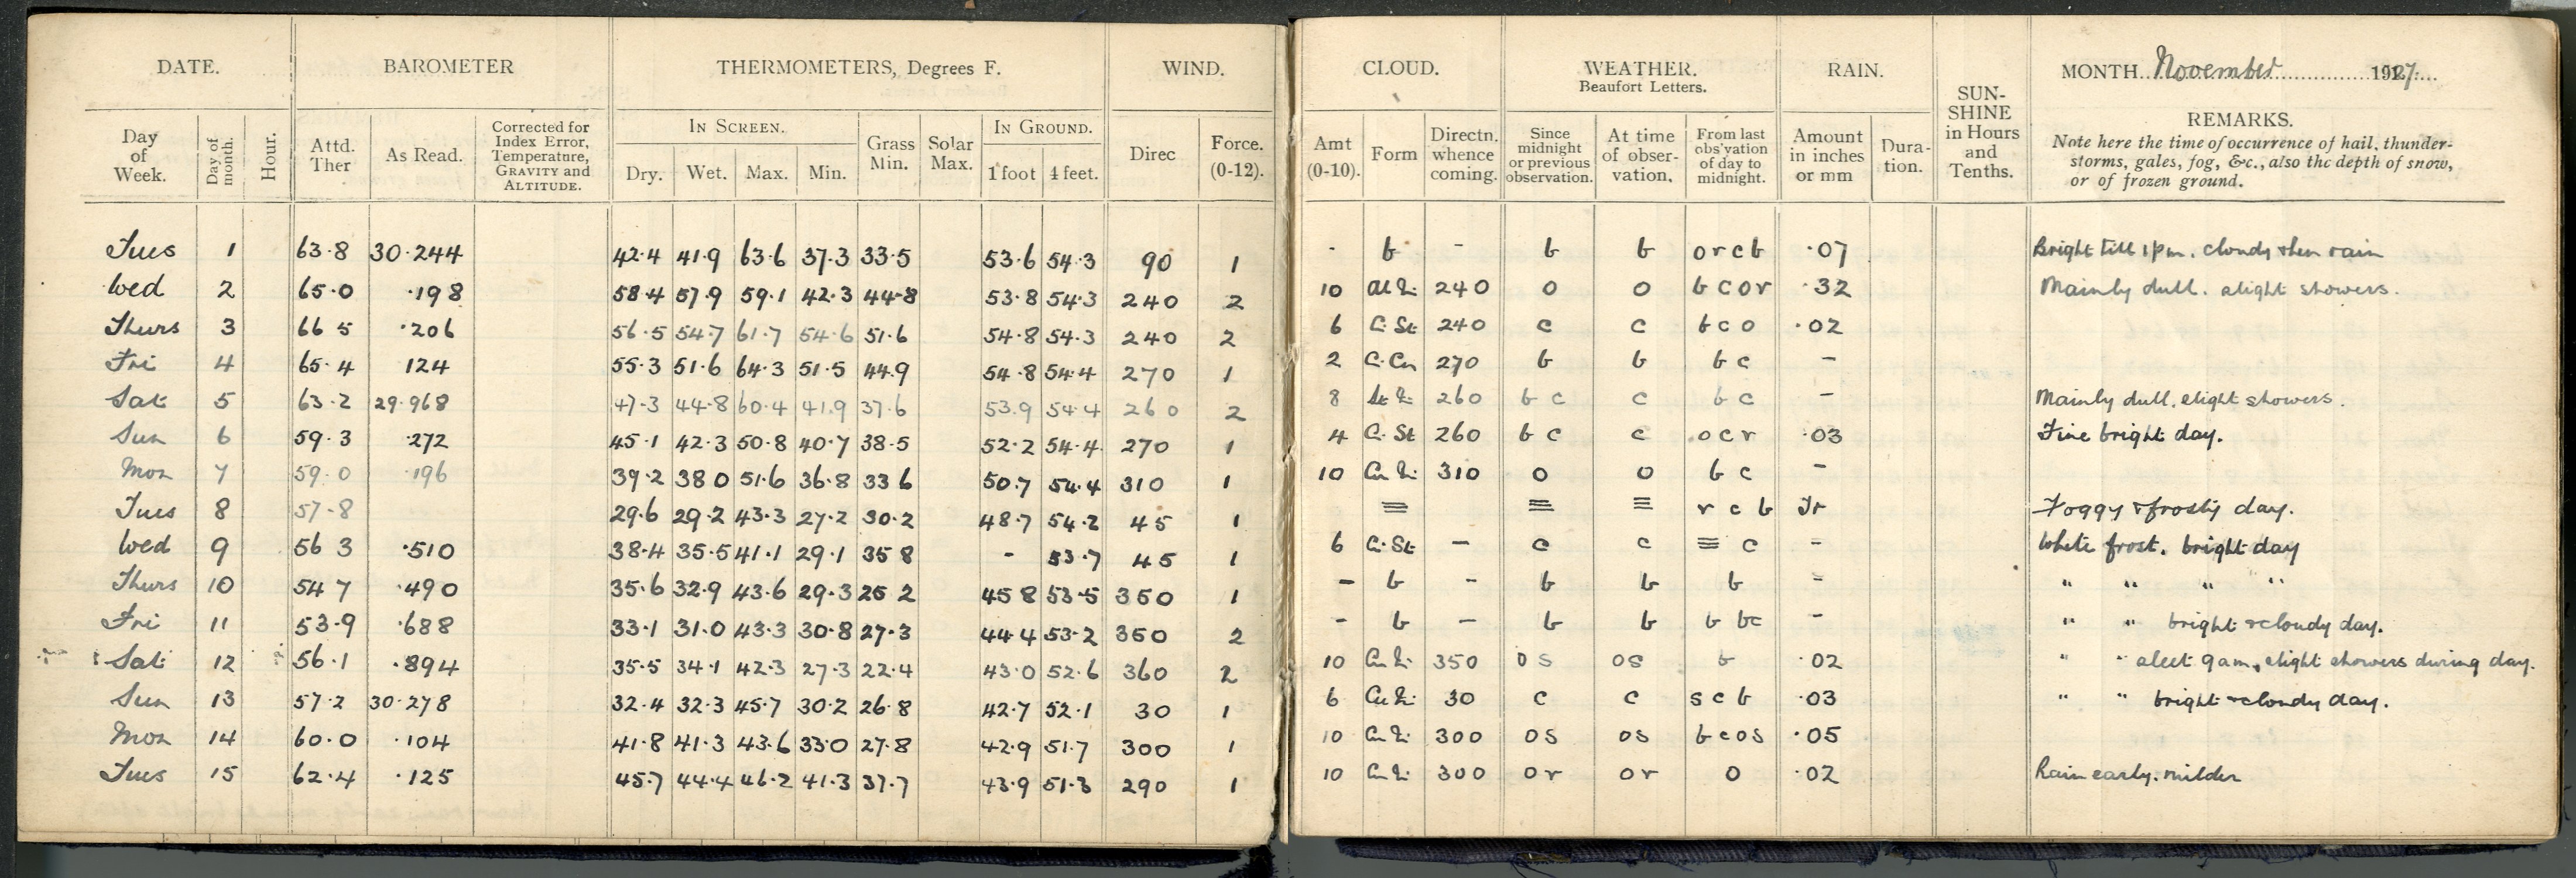 DATE. BAROMETER THERMOMETERS, Degrees F. WIND. CLOUD. WEATHER. Beaufort Letters. RAIN. SUN-SHINE in Hours and Tenths. MONTH November 1927
REMARKS.
Note here the time of occurrence of hail, thunder-
storms, gales, fog, &c., also the depth of snow,
or of frozen ground.
IN SCREEN. IN GROUND.
Day of Week. Day of month. Hour. Attd. Ther As Read. Corrected for Index Error, Temperature, GRAVITY and ALTITUDE. Dry. Wet. Max. Min. Grass Min. Solar Max. 1 foot 4 feet. Direc Force. (0-12). Amt (0-10). Form Directn. whence coming. Since midnight or previous observation. At time of obser-vation. From last obs'vation of day to midnight. Amount in inches or mm Dura-tion.
Tues 1 63.8 30.244 42.4 41.9 63.6 37.3 33.5 53.6 54.3 90 1 - b - b b orcb .07 Bright till 1 pm. cloudy then rain
Wed 2 65.0 .198 58.4 57.9 59.1 42.3 44.8 53.8 54.3 240 2 10 240 o o bcor .32 Mainly dull. slight showers.
Thurs 3 66 5 .206 56.5 54.7 61.7 54.6 51.6 54.8 54.3 240 2 6 C.St 240 c c bco .02
Fri 4 65.4 124 55.3 51.6 64.3 51.5 44.9 54.8 54.4 270 1 2 C.Cu 270 b b bc -
Sat 5 63.2 29.968 47.3 44.8 60.4 41.9 37.6 53.9 54.4 260 2 8 260 bc c bc - Mainly dull. slight showers.
Sun 6 59.3 .272 45.1 42.3 50.8 40.7 38.5 52.2 54.4 270 1 4 C.St 260 bc c ocr .03 Fine bright day.
Mon 7 59.0 .196 39.2 38 0 51.6 36.8 33 6 50.7 54.4 310 1 10 310 o o bc -
Tues 8 57.8 29.6 29.2 43.3 27.2 30.2 48.7 54.2 45 1 ≡ ≡ ≡ rcb Tr Foggy & frosty day.
Wed 9 56 3 .510 38.4 35.5 41.1 29.1 35 8 - 53.7 45 1 6 C.St - c c ≡ c - White frost. bright day
Thurs 10 54 7 .490 35.6 32.9 43.6 29.3 25 2 45 8 53.5 350 1 - b - b b b - " " " "
Fri 11 53.9 .688 33.1 31.0 43.3 30.8 27.3 44.4 53.2 350 2 - b - b b b bc - " " bright & cloudy day.
Sat 12 56.1 .894 35.5 34.1 42.3 27.3 22.4 43.0 52.6 360 2 10 350 os os b .02 " " sleet 9am, slight showers during day.
Sun 13 57.2 30.278 32.4 32.3 45.7 30.2 26.8 42.7 52.1 30 1 6 30 c c scb .03 " " bright & cloudy day.
Mon 14 60.0 .104 41.8 41.3 43.6 33.0 27.8 42.9 51.7 300 1 10 300 os os bcos .05
Tues 15 62.4 .125 45.7 44.4 46.2 41.3 37.7 43.9 51.3 290 1 10 300 or or o .02 Rain early. milder